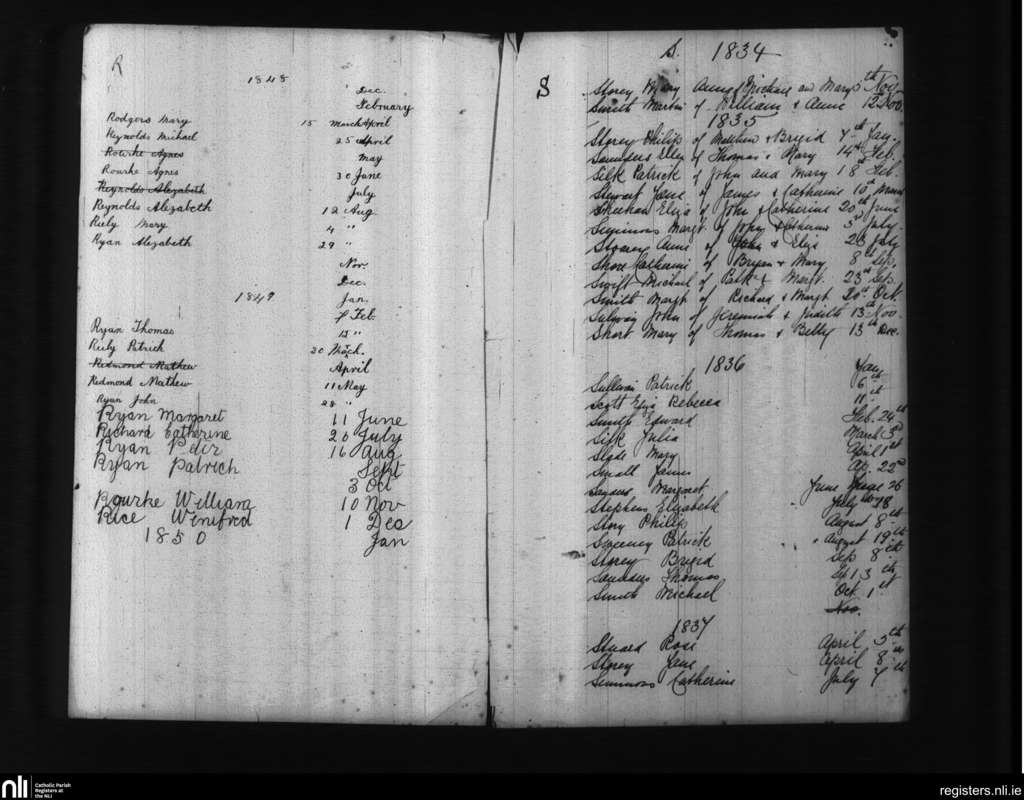 R
1848
" Dec.
February
Rodgers Mary 15 March April
Reynolds Michael 25 April
Rourke Agnes May
Rourke Agnes 30 June
Reynolds Alezabeth July
Reynolds Alezabeth 12 Aug
Reily Mary 4 "
Ryan Alezabeth 29 "
Nov.
Dec.
1849 Jan.
Feb.
Ryan Thomas 13 "
Reily Patrich 20 Mach.
Redmond Mathew April
Redmond Mathew 11 May
Ryan John 28 "
Ryan Margaret 11 June
Richard Catherine 20 July
Ryan Peter 16 Aug
Ryan Patrich Sept
3 Oct
Rourke William 10 Nov
Rice Winifred 1 Dec
1850 Jan
S S. 1834
Storey Mary Anne of Michael and Mary 5th Nov.
Smith Martin of William & Anne 12 Nov
1835
Storey Philip of Matthew & Brigid 7th Jan.
Saunders Ellen of Thomas & Mary 14th Feb.
Silk Patrick of John and Mary 18th Feb.
Stewart Jane of James & Catherine 10th March
Sheehan Eliza of John & Catherine 20th June
Simmons Margt. of John & Catherine 3d July
Storey Anne of John & Eliz 23 July
Shore Catherine of Bryan & Mary 8th Sep.
Swift Michael of Patk & Margt. 23d Sep.
Smith Margt of Richard & Margt 20th Oct.
Sullivan John of Jeremiah & Judith 13th Nov.
Short Mary of Thomas & Betty 13th Dec.
1836
Sullivan Patrick Jany 6th
Scott Eliza Rebecca 11th
Smith Edward Feb. 24th
Silk Julia March 3d
Slade Mary April 1st
Small James Ap. 22d
Margaret June 26
Stephens Elizabeth July 18
Story Philip August 8th
Sweeney Patrick August 19th
Storey Brigid Sep 8th
Saunders Thomas 13th
Smith Michael Oct. 1st
Nov.
1837
Stuard Rose April 5th
Storey Jane April 8th
Simmons Catherine July 7th
nli
Catholic Parish
Registers at
the NLI
registers.nli.ie